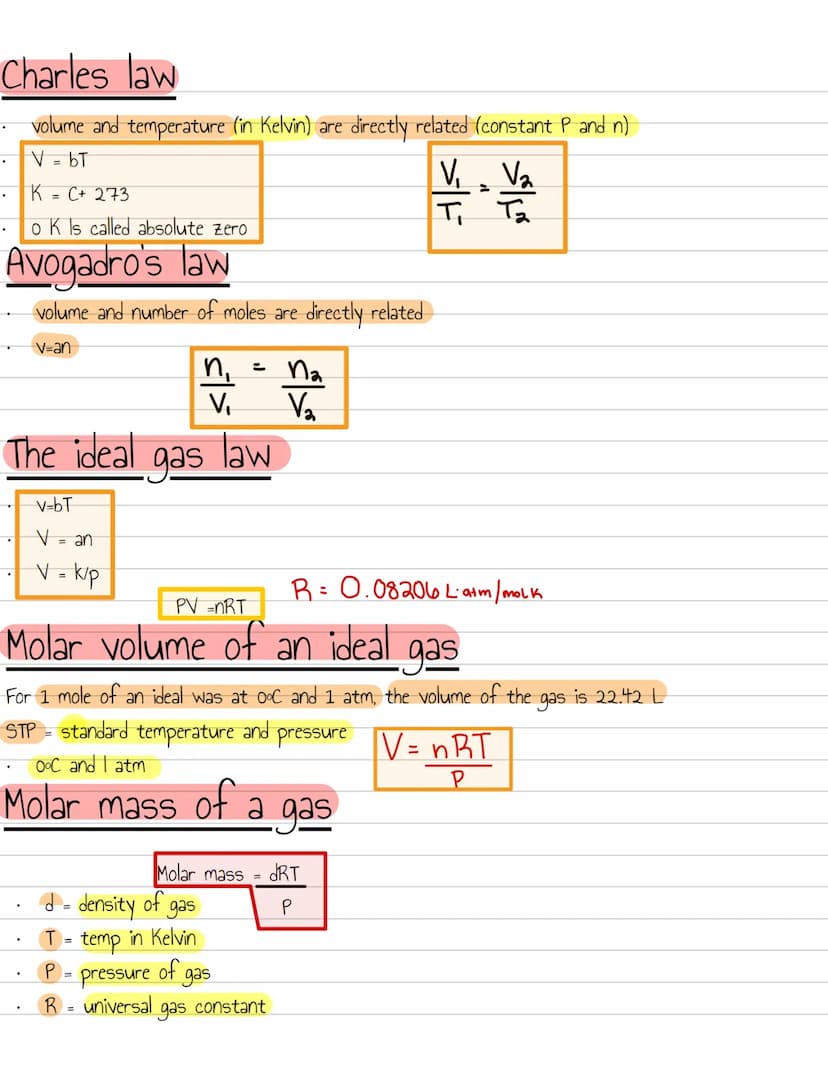 Charles law
· volume and temperature (in Kelvin) are directly related (constant P and n)
· V = bT
· K = C+ 273
· 0 K Is called absolute zero
V₁/T₁ = V₂/T₂
Avogadro's law
· volume and number of moles are directly related
· V=an
n₁/V₁ = n₂/V₂
The ideal gas law
· V=bT
· V = an
· V = k/p
PV =nRT
R = 0.08206 L·atm/molK
Molar volume of an ideal gas
For 1 mole of an ideal was at 0°C and 1 atm, the volume of the gas is 22.42 L
STP = standard temperature and pressure
· 0°C and 1 atm
V = nRT/P
Molar mass of a gas
Molar mass = dRT/P
· d = density of gas
· T = temp in Kelvin
· P = pressure of gas
· R = universal gas constant